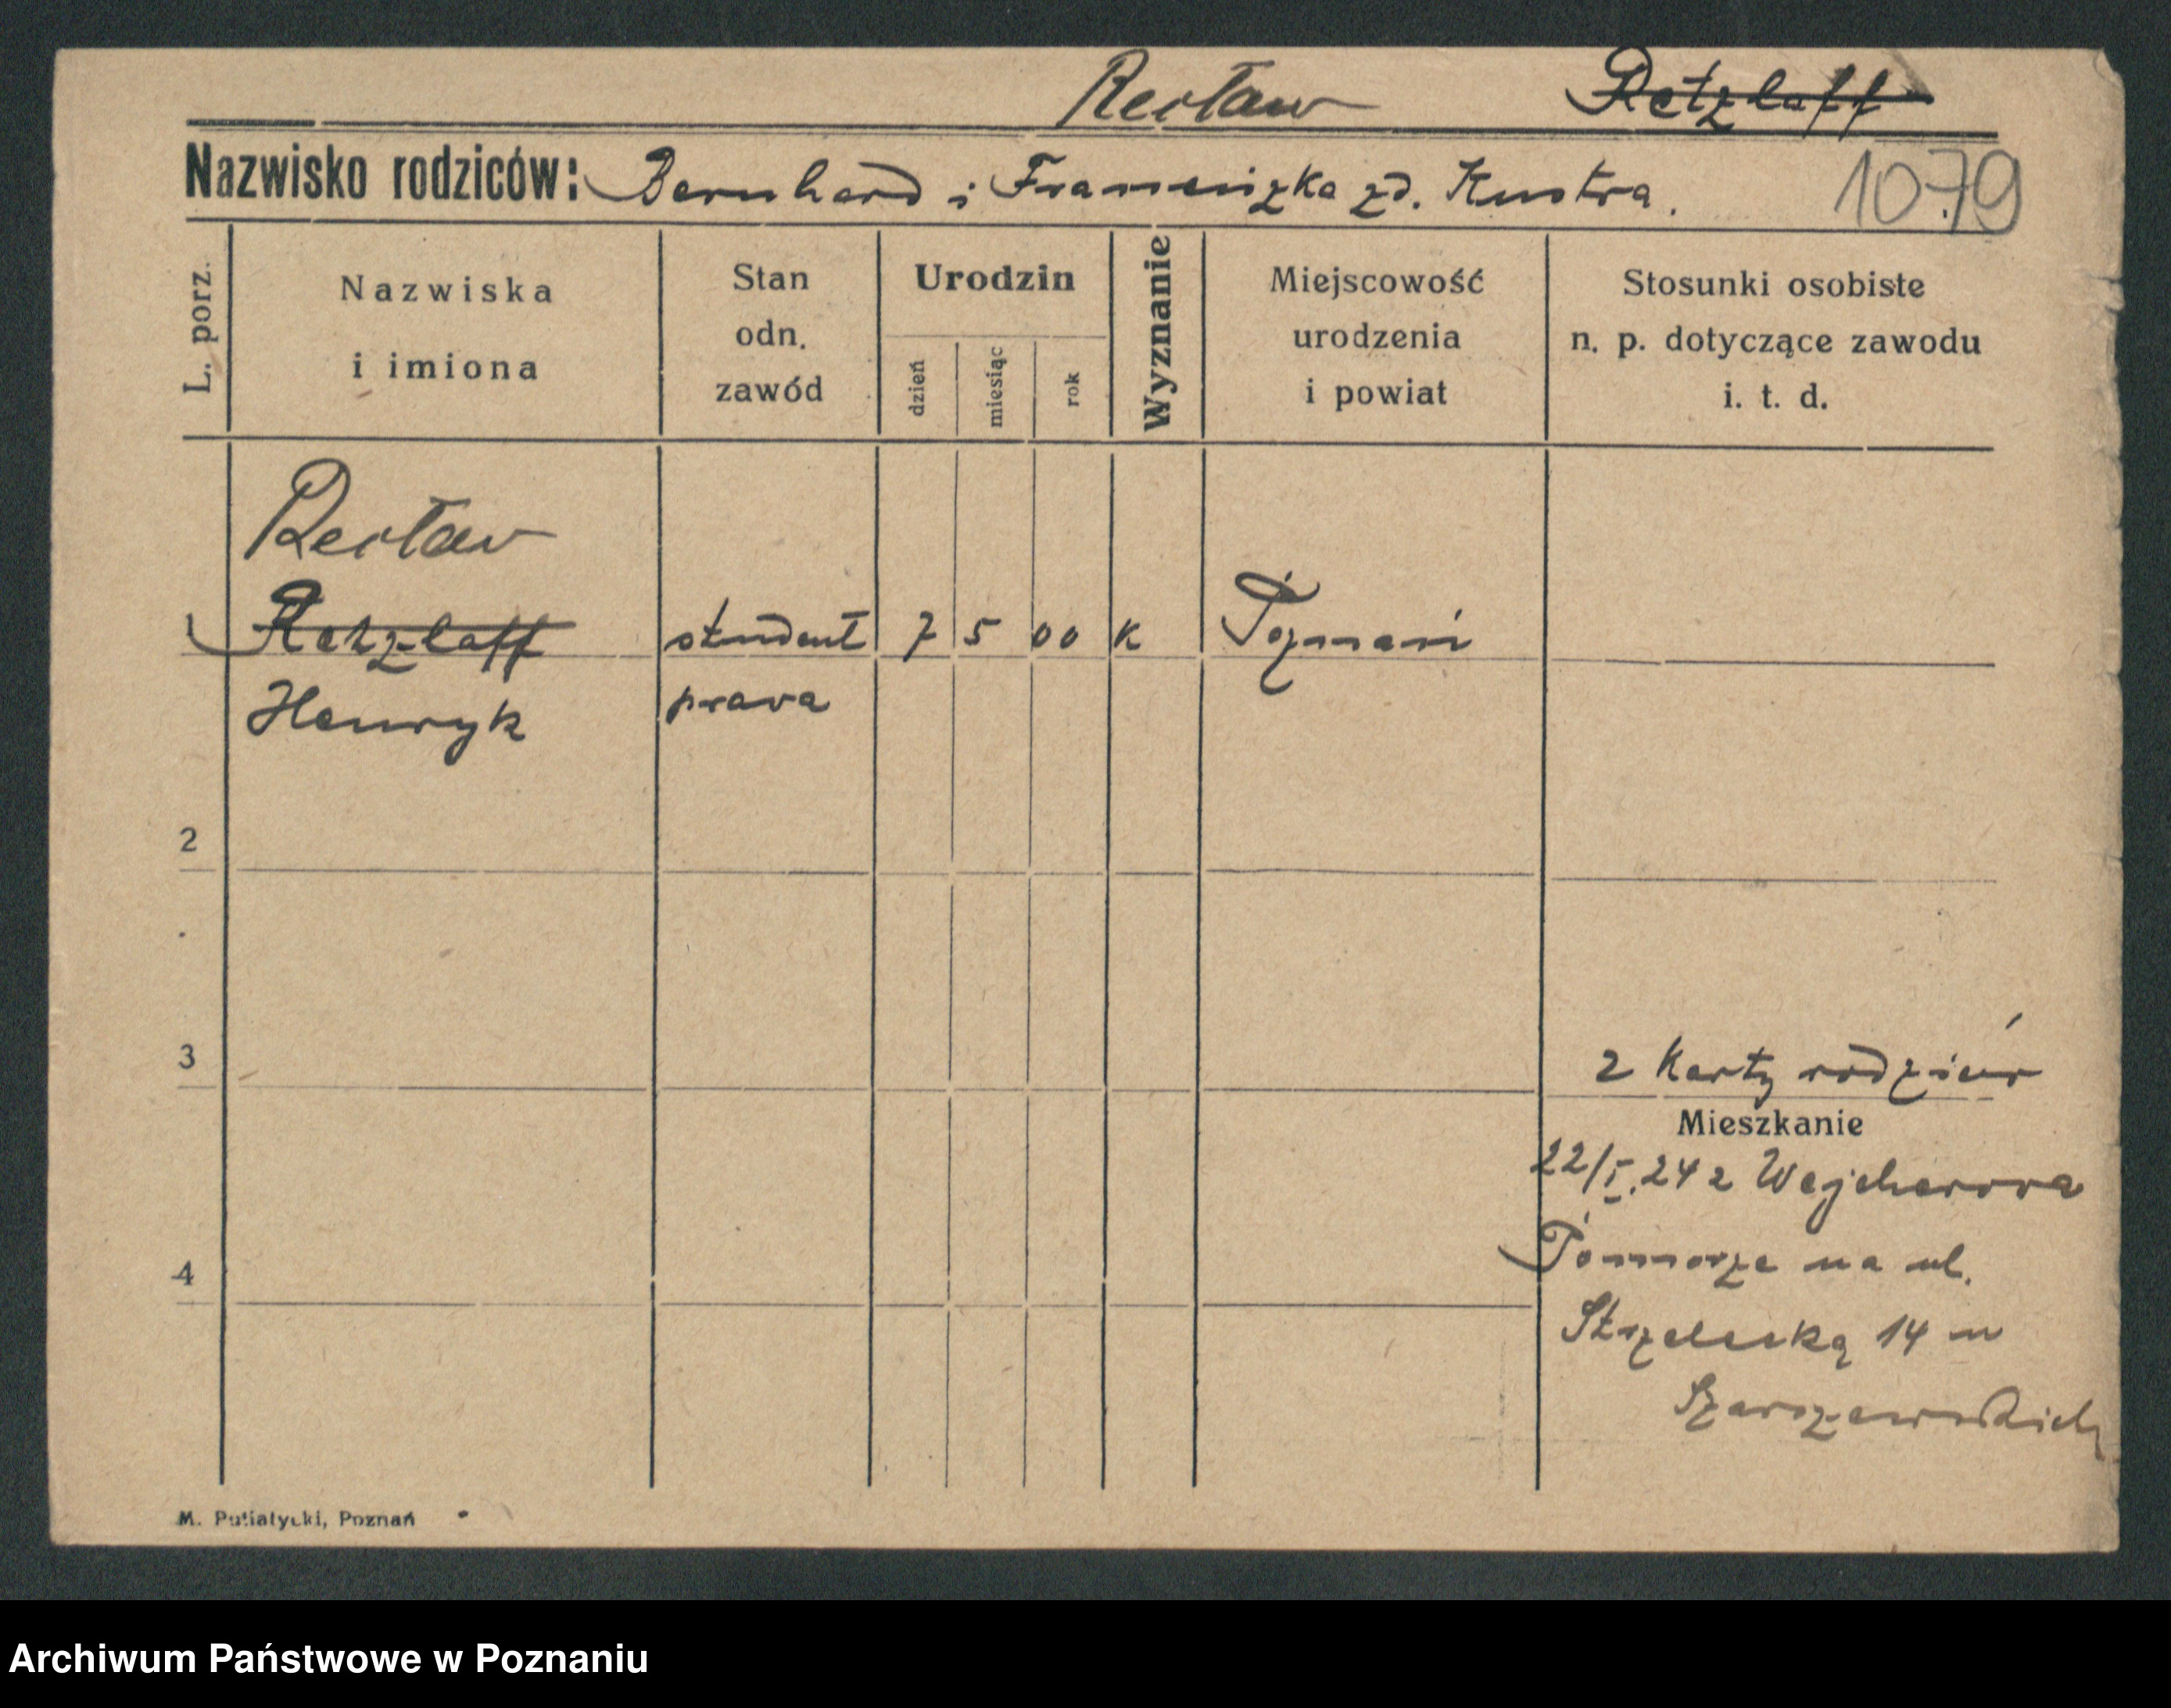 Recław ~~Retzlaff~~
Nazwisko rodziców: Bernhard i Franciszka zd. Kustra.
1079
L. porz.
Nazwiska
i imiona
Stan
odn.
zawód
Urodzin
dzień
miesiąc
rok
Wyznanie
Miejscowość
urodzenia
i powiat
Stosunki osobiste
n. p. dotyczące zawodu
i. t. d.
Recław
1 ~~Retzlaff~~ student 7 5 00 K Poznań
Henryk prawa
2
3
2 Karty rodziców
Mieszkanie
22/I.24 z Wejcherowa
Pommorze na ul.
4
Strzelecką 14 u
M. Putiatycki, Poznań
Archiwum Państwowe w Poznaniu